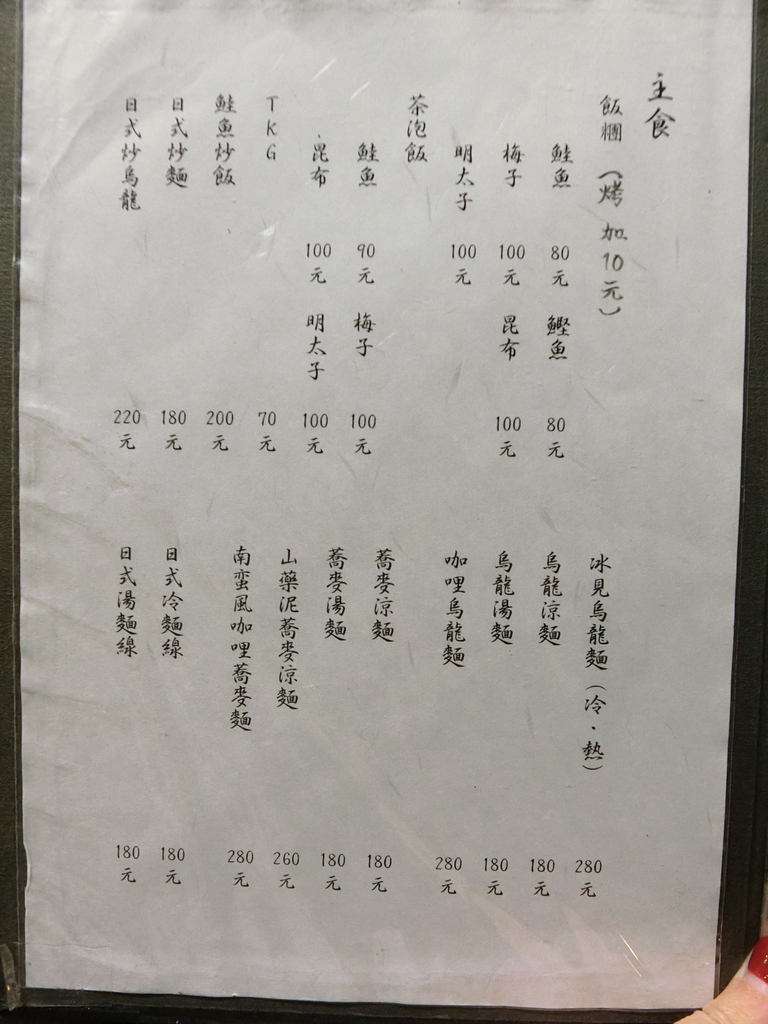 主食
飯糰（烤加10元）
鮭魚 80元 鰹魚 80元
梅子 100元 昆布 100元
明太子 100元
茶泡飯
鮭魚 90元 梅子 100元
昆布 100元 明太子 100元
TKG 70元
鮭魚炒飯 200元
日式炒麵 180元
日式炒烏龍 220元
冰見烏龍麵（冷．熱） 280元
烏龍涼麵 180元
烏龍湯麵 180元
咖哩烏龍麵 280元
蕎麥涼麵 180元
蕎麥湯麵 180元
山藥泥蕎麥涼麵 260元
南蛮風咖哩蕎麥麵 280元
日式冷麵線 180元
日式湯麵線 180元